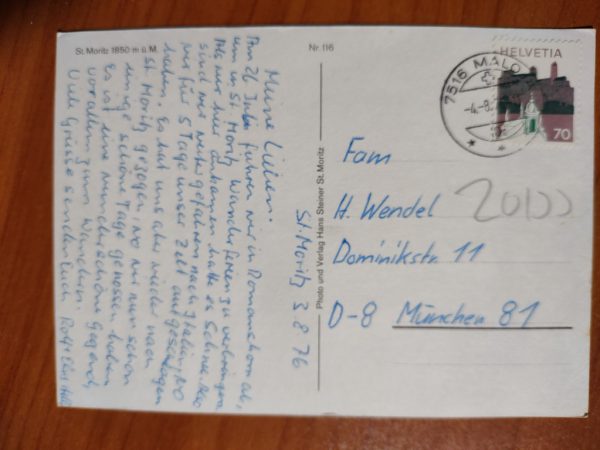 St. Moritz 1850 m ü. M.
Nr. 116
St. Moritz 3.8.76
Meine Lieben.
Am 26. Juli fuhren wir in Romanshorn ab,
um in St. Moritz Wanderferien zu verbringen.
Als wir hier ankamen hatte es Schnee. Also
sind wir weiter gefahren nach Italien, wo
wir für 5 Tage unser Zelt aufgeschlagen
haben. Es hat uns aber wieder nach
St. Moritz gezogen, wo wir nun schon
einige schöne Tage genossen haben.
Es ist eine wunderschöne Gegend,
vor allem zum Wandern.
Viele Grüsse senden Euch Rolf
Photo und Verlag Hans Steiner St. Moritz
HELVETIA
70
7516 MALO
-4.-8.
Fam
H. Wendel
Dominikstr. 11
D-8 München 81